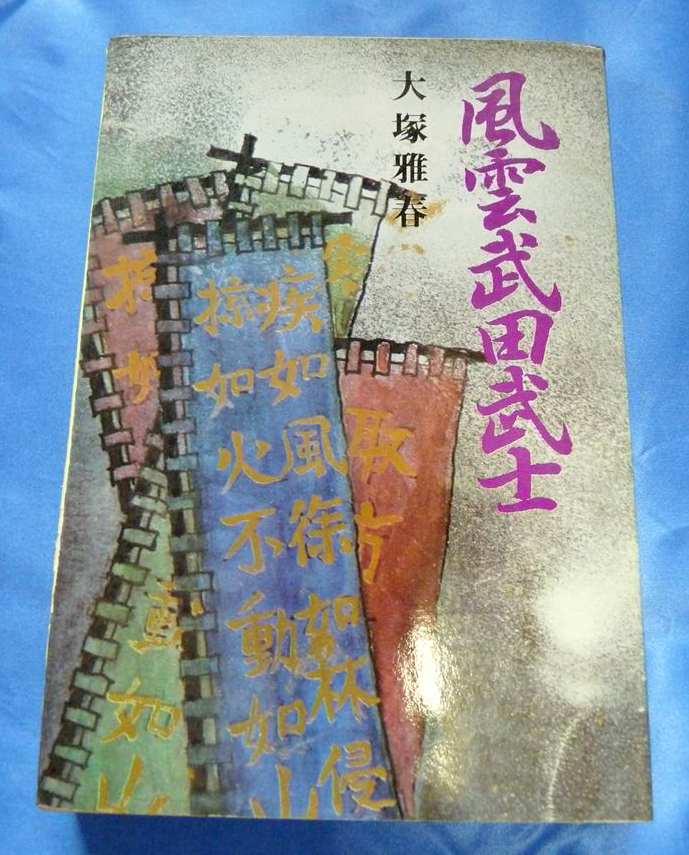 風雲武田武士
大塚雅春
疾如風徐如林侵
掠如火不動如山
動如山